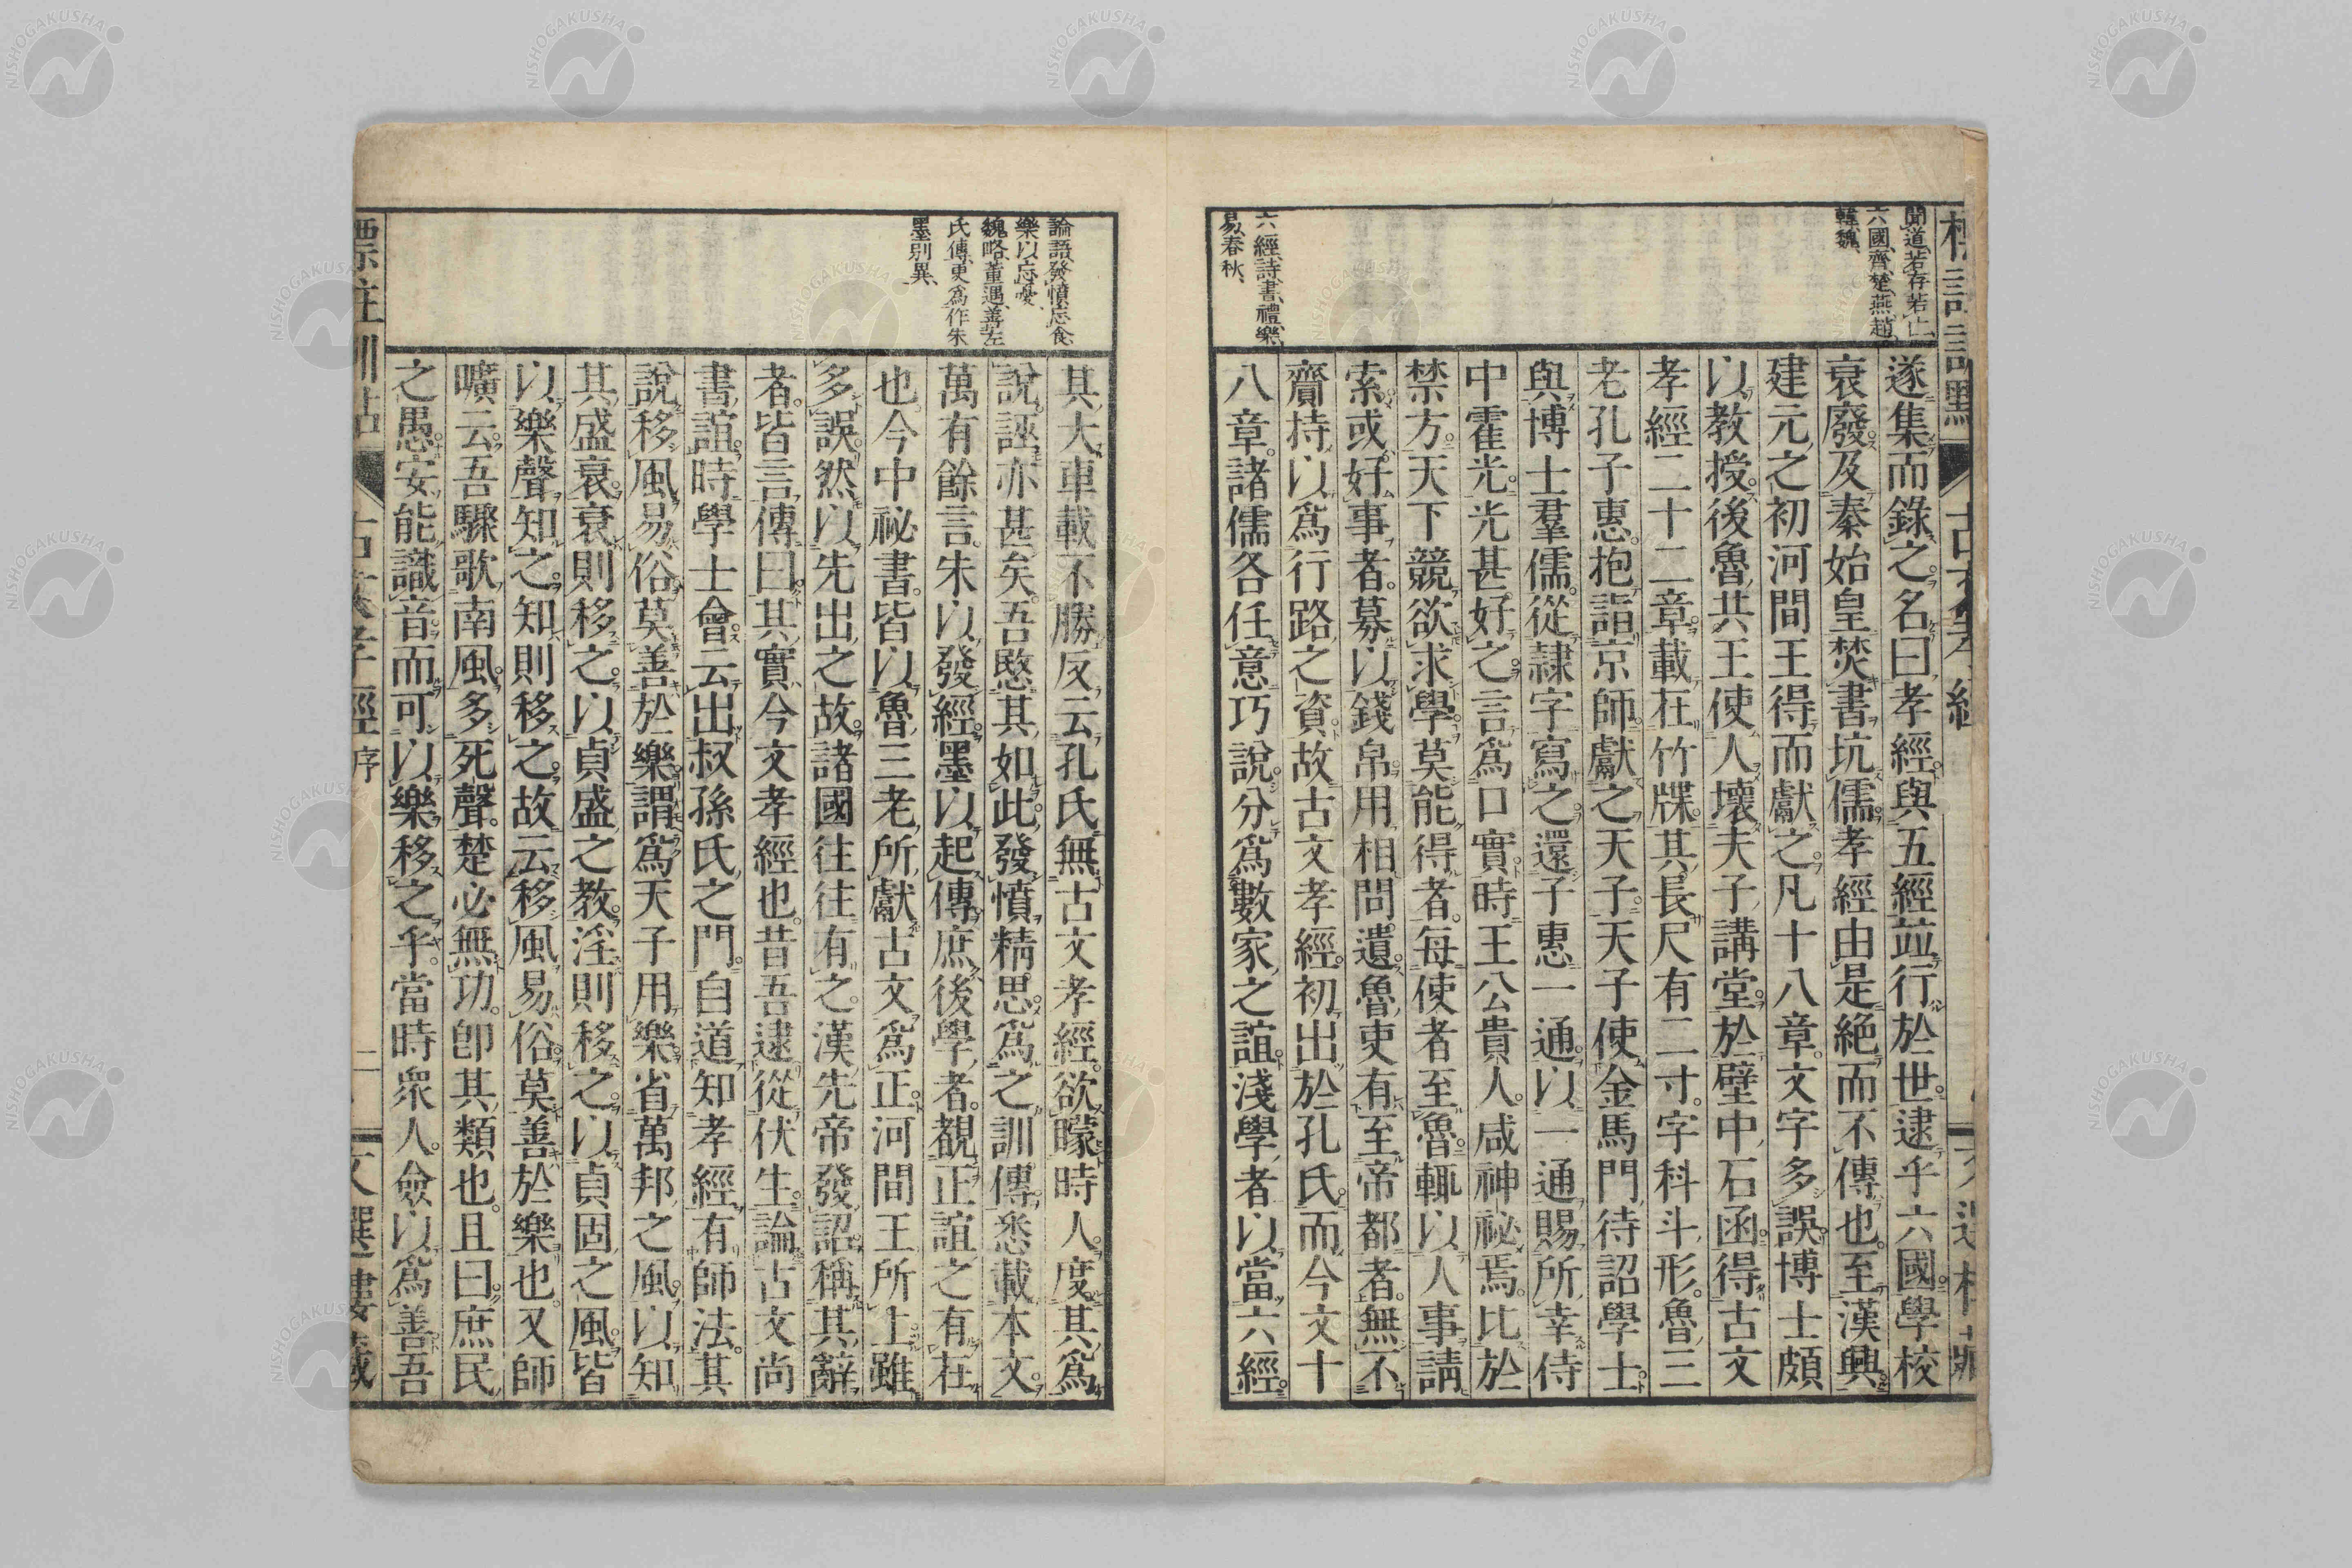 聞道、若存若亡、
六國、齊楚、燕、趙、
韓、魏、
遂集而錄之。名曰孝經。與五經竝行於世。逮乎六國。學校
衰廢。及秦始皇焚書坑儒。孝經由是絕而不傳也。至漢興
建元之初。河間王得而獻之。凡十八章。文字多誤。博士頗
以教授。後魯共王使人壞夫子講堂。於壁中石函。得古文
孝經二十二章。載在竹牒。其長尺有二寸。字科斗形。魯三
老孔子惠。抱詣京師。獻之天子。天子使金馬門待詔學士
與博士羣儒。從隸字寫之。還子惠一通。以一通賜所幸侍
中霍光。光甚好之。言爲口實。時王公貴人。咸神祕焉。比於
禁方。天下競欲求學。莫能得者。每使者至魯。輒以人事請
索。或好事者。募以錢帛。用相問遺。魯吏有至帝都者。無不
齎持。以爲行路之資。故古文孝經。初出於孔氏。而今文十
八章。諸儒各任意巧說。分爲數家之誼。淺學者以當六經。
六經、詩、書、禮、樂、
易、春秋、
論語、發憤忘食、
樂以忘憂、
魏略、董遇、善左
氏傳、更爲作朱
墨別異、
其大車載不勝。反云孔氏無古文孝經。欲矇時人。度其爲
說。誣亦甚矣。吾愍其如此。發憤精思。爲之訓傳。悉載本文。
萬有餘言。朱以發經。墨以起傳。庶後學者。覩正誼之有在
也。今中祕書。皆以魯三老所獻古文爲正。河間王所上。雖
多誤。然以先出之故。諸國往往有之。漢先帝發詔。稱其辭
者。皆言傳曰。其實今文孝經也。昔吾逮從伏生。論古文尚
書誼。時學士會云。出叔孫氏之門。自道知孝經有師法。其
說移風易俗。莫善於樂。謂爲天子用樂。省萬邦之風。以知
其盛衰。衰則移之。以貞盛之教。淫則移之。以貞固之風。皆
以樂聲知之。知則移之。故云移風易俗。莫善於樂也。又師
曠云。吾驟歌南風。多死聲。楚必無功。卽其類也。且曰。庶民
之愚。安能識音。而可以樂移之乎。當時衆人。僉以爲善。吾